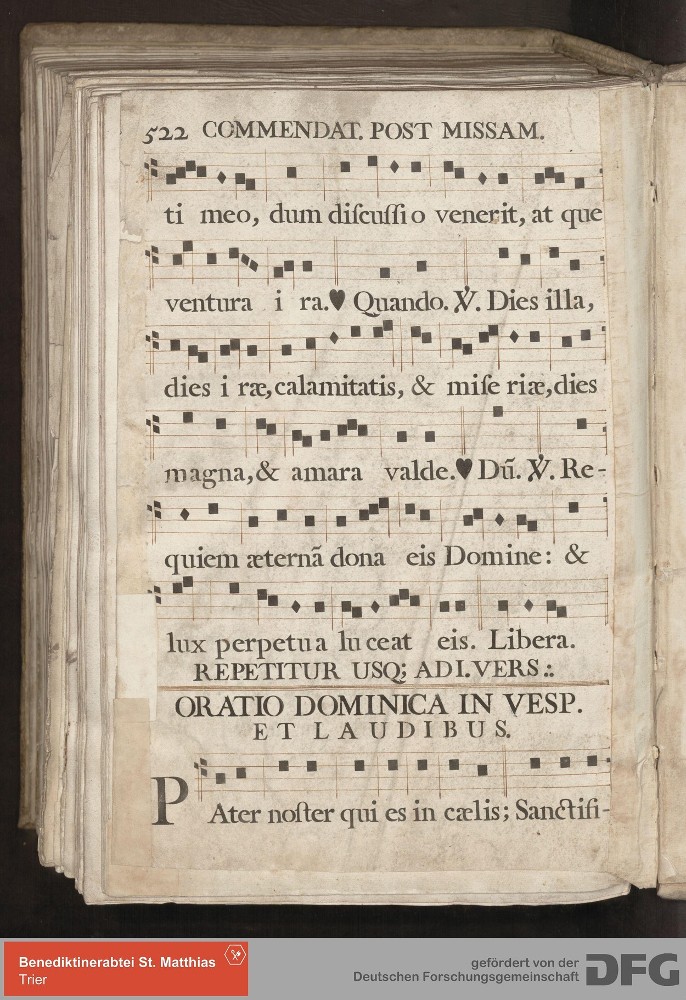 522 COMMENDAT. POST MISSAM.
ti meo, dum diſcuſſi o venerit, at que
ventura i ra.♥ Quando. ℣. Dies illa,
dies i ræ, calamitatis, & miſe riæ, dies
magna, & amara valde.♥ Dũ. ℣. Re-
quiem æternã dona eis Domine: &
lux perpetua lu ceat eis. Libera.
REPETITUR USQ; AD I. VERS.:.
ORATIO DOMINICA IN VESP.
ET LAUDIBUS.
PAter noſter qui es in cælis; Sanctifi-
Benediktinerabtei St. Matthias
Trier
gefördert von der
Deutschen Forschungsgemeinschaft
DFG